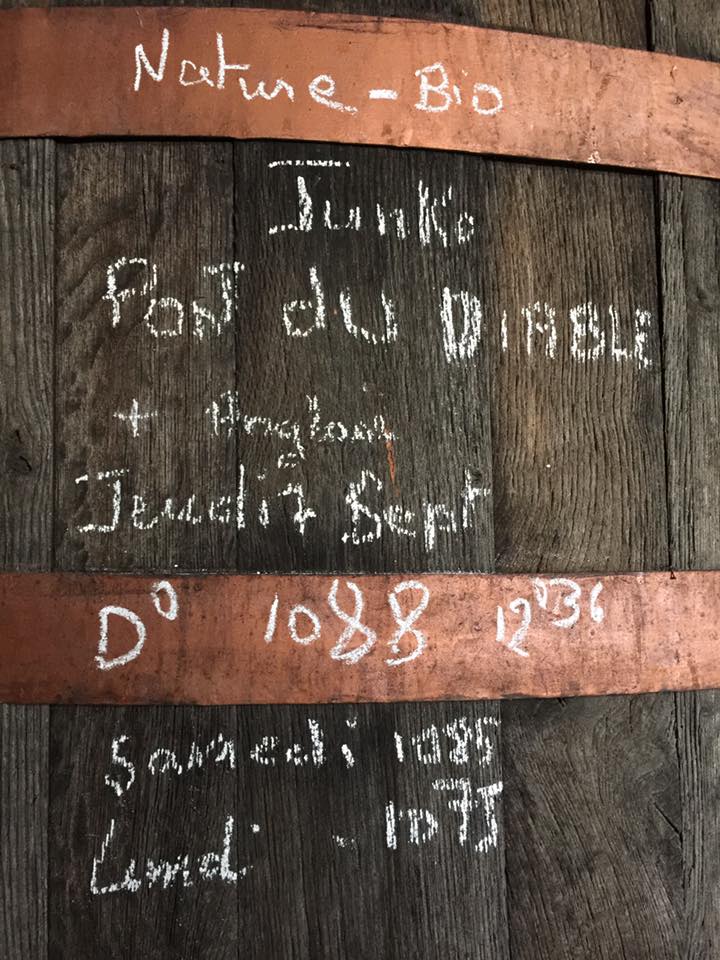 Nature - Bio
Junko
Pont du DIABLE
+ Anglais
Jeudi 7 Sept
D° 1088 12°36
Samedi 1085
Lundi - 1075